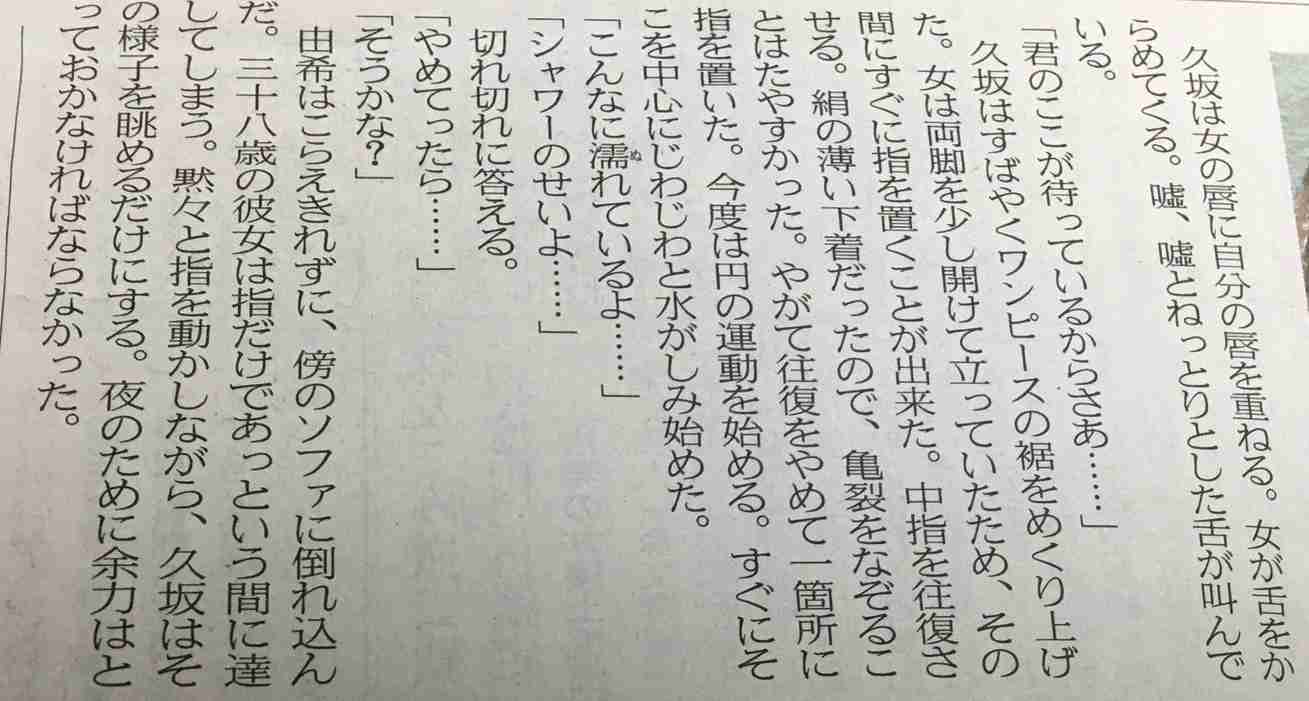 久坂は女の唇に自分の唇を重ねる。女が舌をか
らめてくる。嘘、嘘とねっとりとした舌が叫んで
いる。
「君のここが待っているからさあ……」
久坂はすばやくワンピースの裾をめくり上げ
た。女は両脚を少し開けて立っていたため、その
間にすぐに指を置くことが出来た。中指を往復さ
せる。絹の薄い下着だったので、亀裂をなぞるこ
とはたやすかった。やがて往復をやめて一箇所に
指を置いた。今度は円の運動を始める。すぐにそ
こを中心にじわじわと水がしみ始めた。
「こんなに濡れているよ……」
「シャワーのせいよ……」
切れ切れに答える。
「やめてったら……」
「そうかな？」
由希はこらえきれずに、傍のソファに倒れ込ん
だ。三十八歳の彼女は指だけであっという間に達
してしまう。黙々と指を動かしながら、久坂はそ
の様子を眺めるだけにする。夜のために余力はと
っておかなければならなかった。